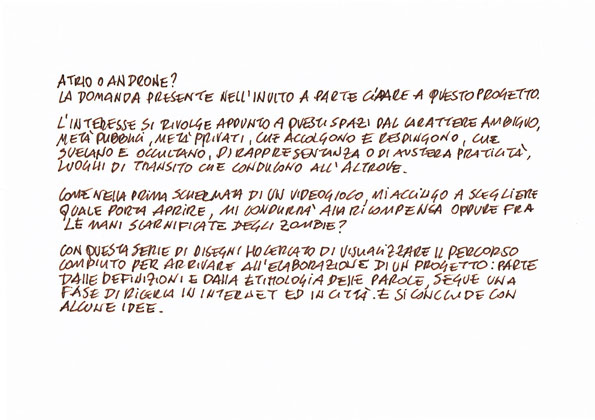 ATRIO O ANDRONE?
LA DOMANDA PRESENTE NELL'INVITO A PARTECIPARE A QUESTO PROGETTO.
L'INTERESSE SI RIVOLGE APPUNTO A QUESTI SPAZI DAL CARATTERE AMBIGUO,
METÀ PUBBLICI, METÀ PRIVATI, CHE ACCOLGONO E RESPINGONO, CHE
SVELANO E OCCULTANO, DI RAPPRESENTANZA O DI AUSTERA PRATICITÀ,
LUOGHI DI TRANSITO CHE CONDUCONO ALL'ALTROVE.
COME NELLA PRIMA SCHERMATA DI UN VIDEOGIOCO, MI ACCINGO A SCEGLIERE
QUALE PORTA APRIRE, MI CONDURRÀ ALLA RICOMPENSA OPPURE FRA
LE MANI SCARNIFICATE DEGLI ZOMBIE?
CON QUESTA SERIE DI DISEGNI HO CERCATO DI VISUALIZZARE IL PERCORSO
COMPIUTO PER ARRIVARE ALL'ELABORAZIONE DI UN PROGETTO: PARTE
DALLE DEFINIZIONI E DALLA ETIMOLOGIA DELLE PAROLE, SEGUE UNA
FASE DI RICERCA IN INTERNET ED IN CITTÀ. E SI CONCLUDE CON
ALCUNE IDEE.